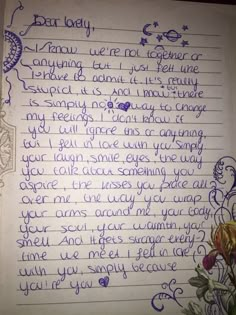 Dear lovely,
I know we're not together or
anything but I just felt like
I have to admit it. It's really
stupid, it is, and I know there
is simply no way to change
my feelings. I don't know if
you will ignore this or anything,
but I fell in love with you simply
your laugh, smile, eyes, the way
you talk about something you
aspire, the kisses you place all
over me, the way you wrap
your arms around me, your body,
your soul, your warmth, your
smell. And it gets stronger every
time we meet. I fell in love
with you, simply because
you're you